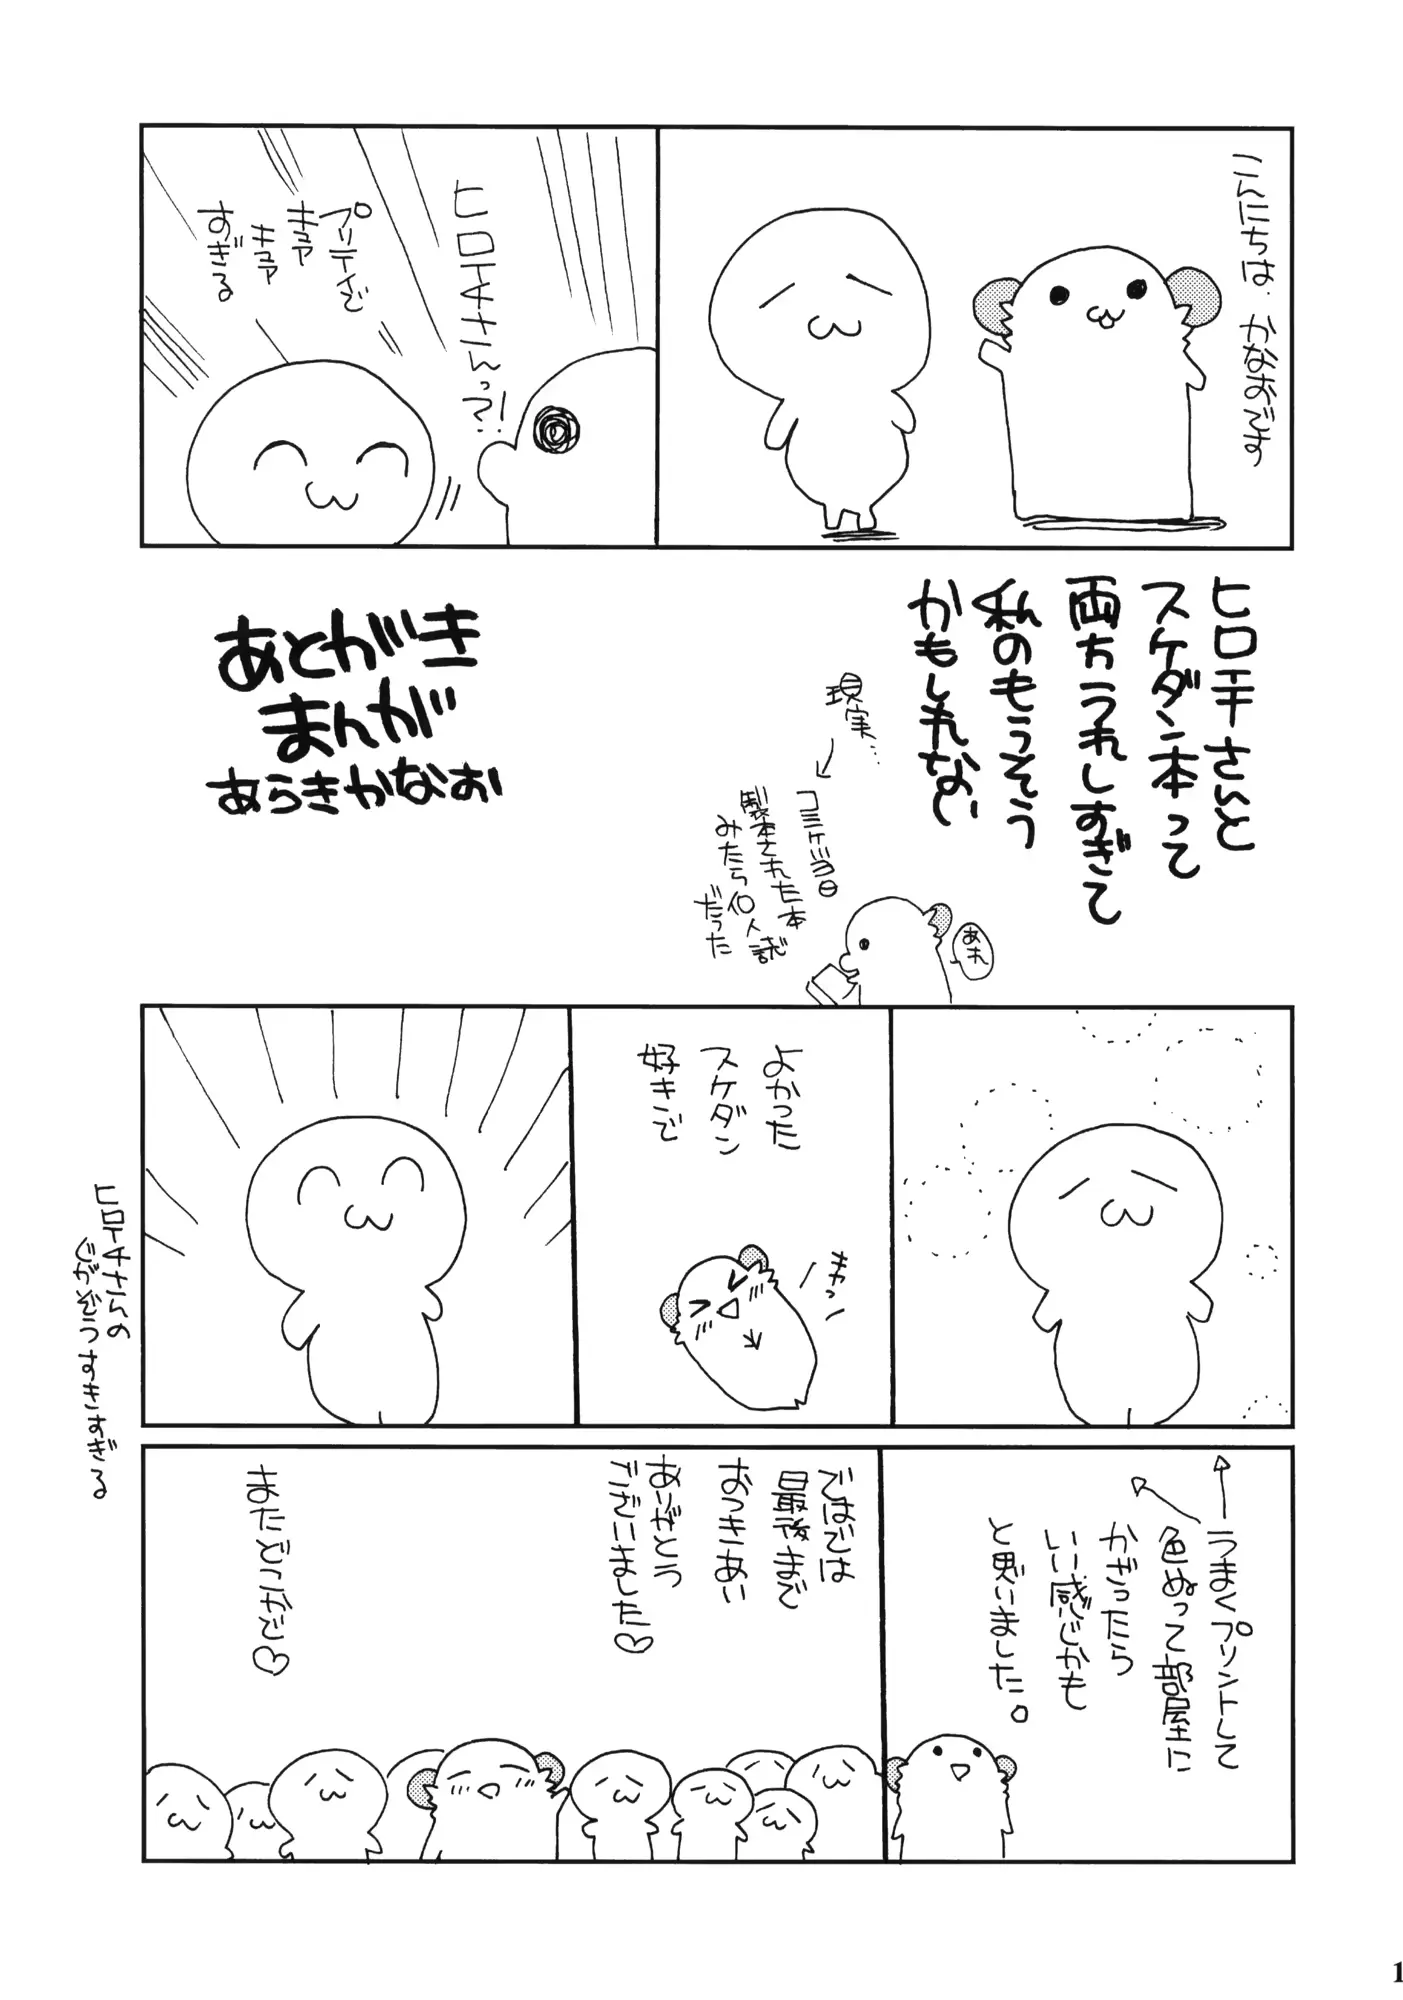 こんにちは かなおです
ヒロイチさんっ?!
プリティで
キュア
キュア
すぎる
ヒロイチさんと
スケダン本って
両方うれしすぎて
私のもうそう
かもしれない
現実…
コミケ当日
製本された本
みたら個人誌
だった
あれ
あとがき
まんが
あらきかなお
よかった
スケダン
好きで
キャっ
ヒロイチさんの
じがぞうすきすぎる
うまくプリントして
色ぬって部屋に
かざったら
いい感じかも
と思いました。
ではでは
最後まで
おつきあい
ありがとう
ございました♡
またどこかで♡
1